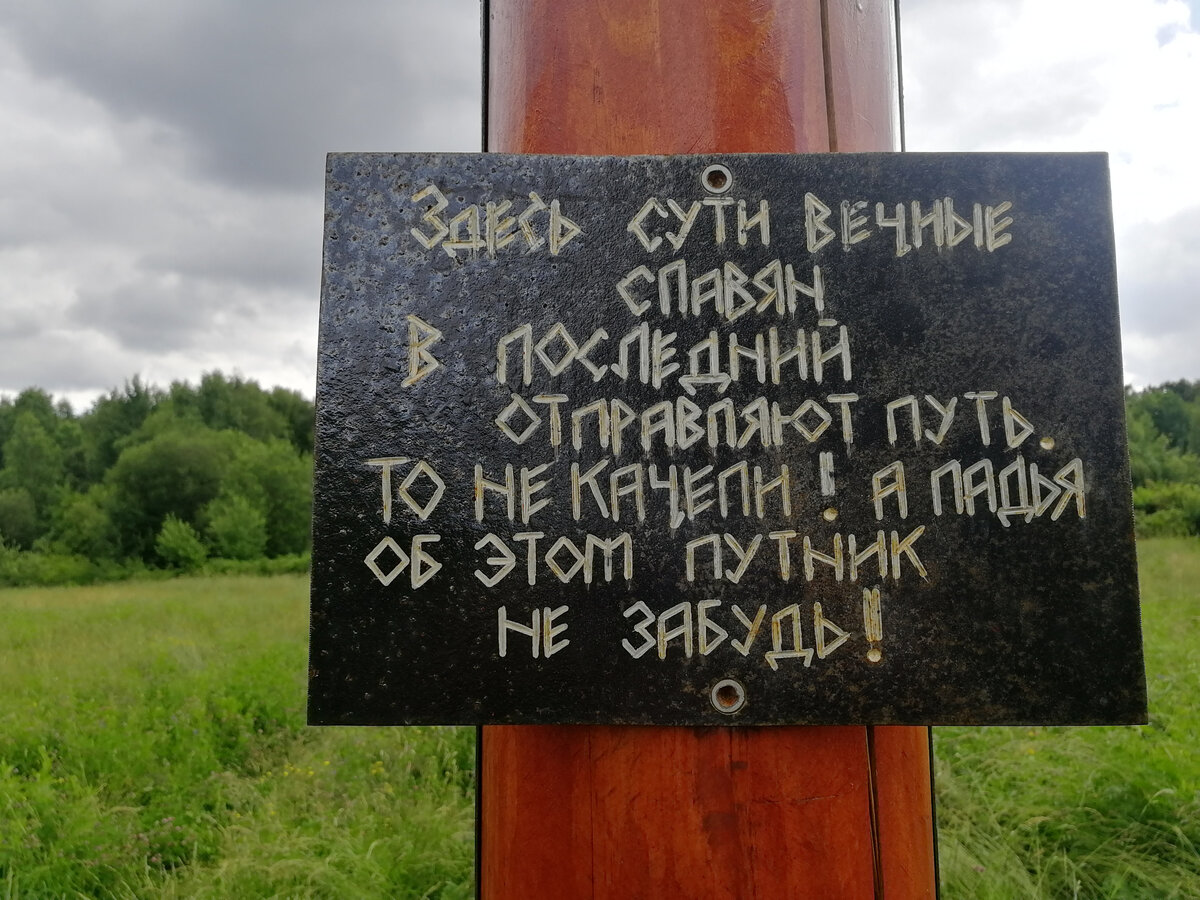 Здесь сути вечные
славян
в последний
отправляют путь.
то не качели! а ладья
об этом путник
не забудь!